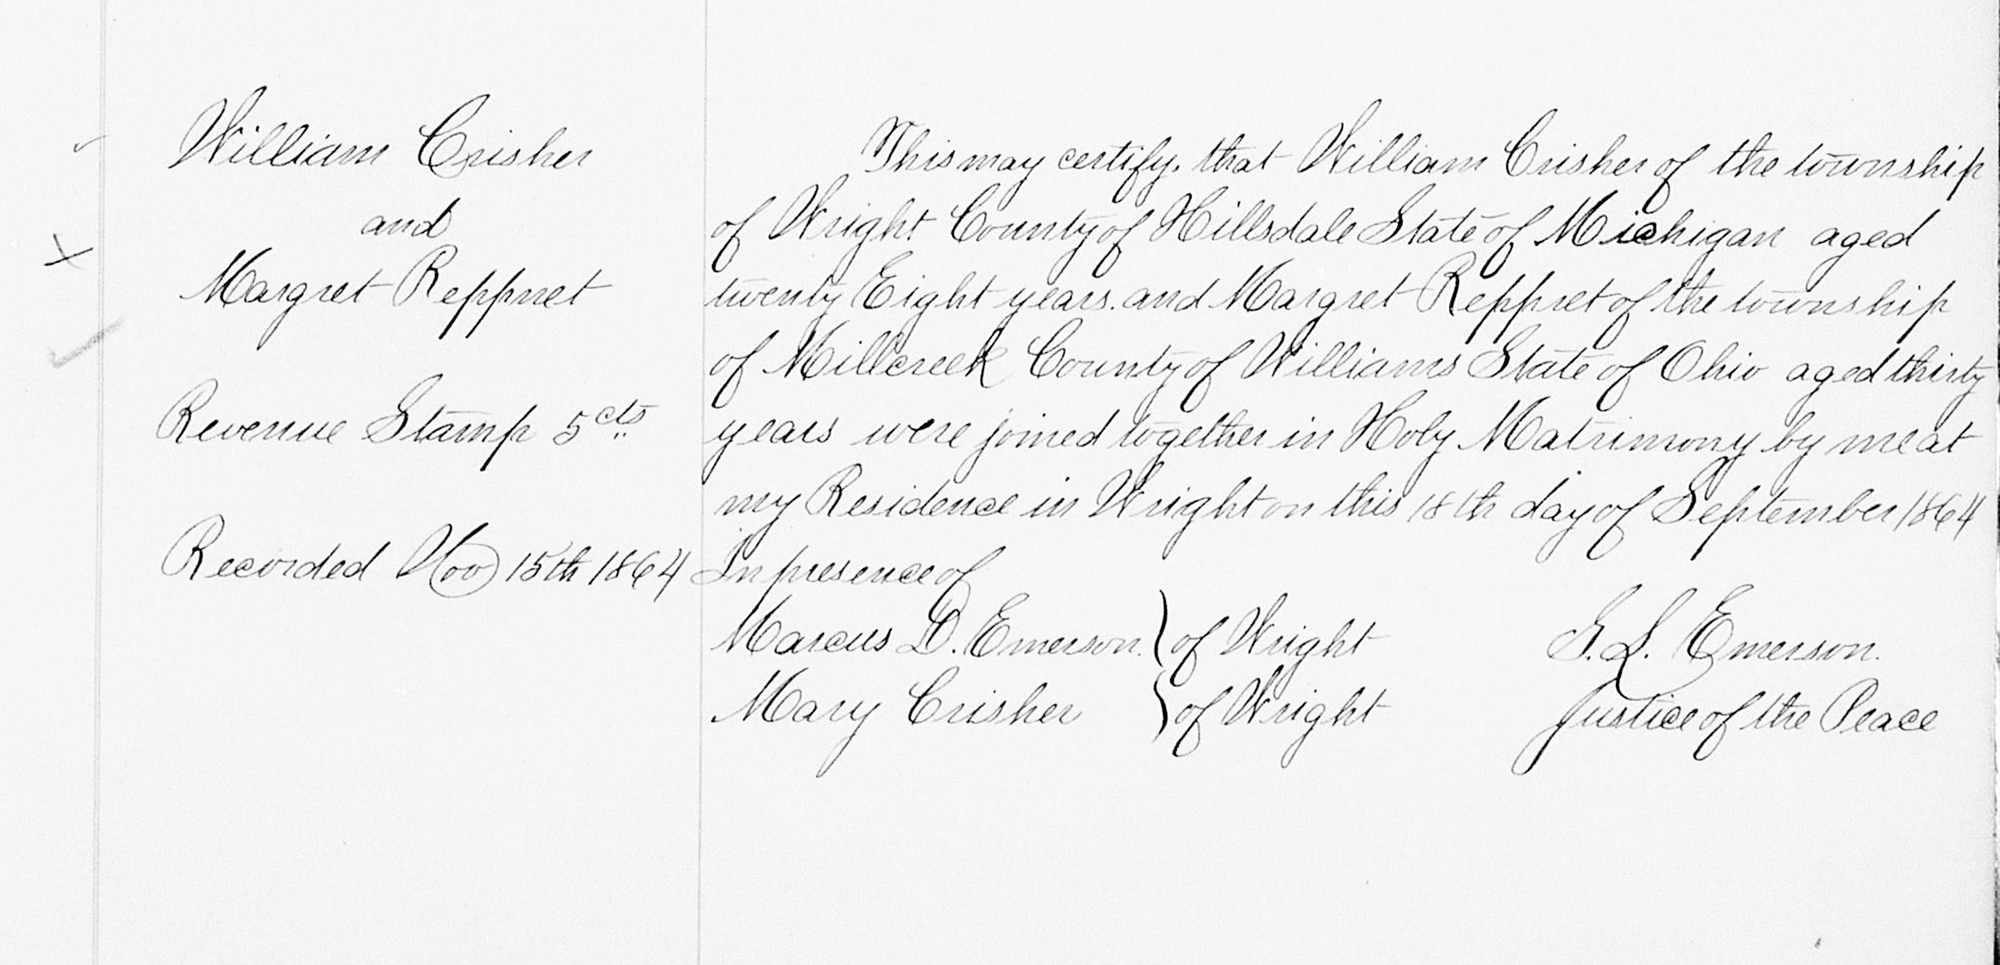 William Crisher
and
Margret Reppret
Revenue Stamp 5 cts
Recorded Nov 15th 1864
This may certify, that William Crisher of the township
of Wright County of Hillsdale State of Michigan aged
twenty Eight years. and Margret Reppret of the township
of Millcreek County of Williams State of Ohio aged thirty
years were joined together in Holy Matrimony by me at
my Residence in Wright on this 18th day of September 1864
In presence of
Marcus D. Emerson. } of Wright
Mary Crisher } of Wright
L. Emerson.
Justice of the Peace